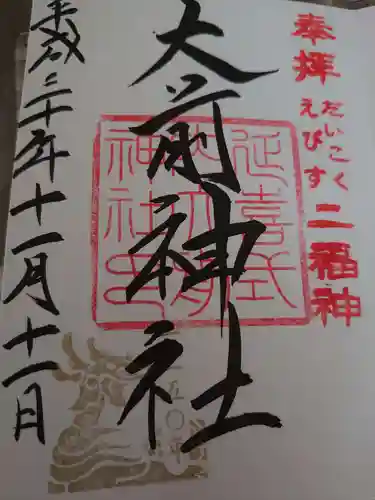 奉拝
だいこく
えびす
二福神
大前神社
延喜式
内大前
神社印
平成二十五年十一月十一日